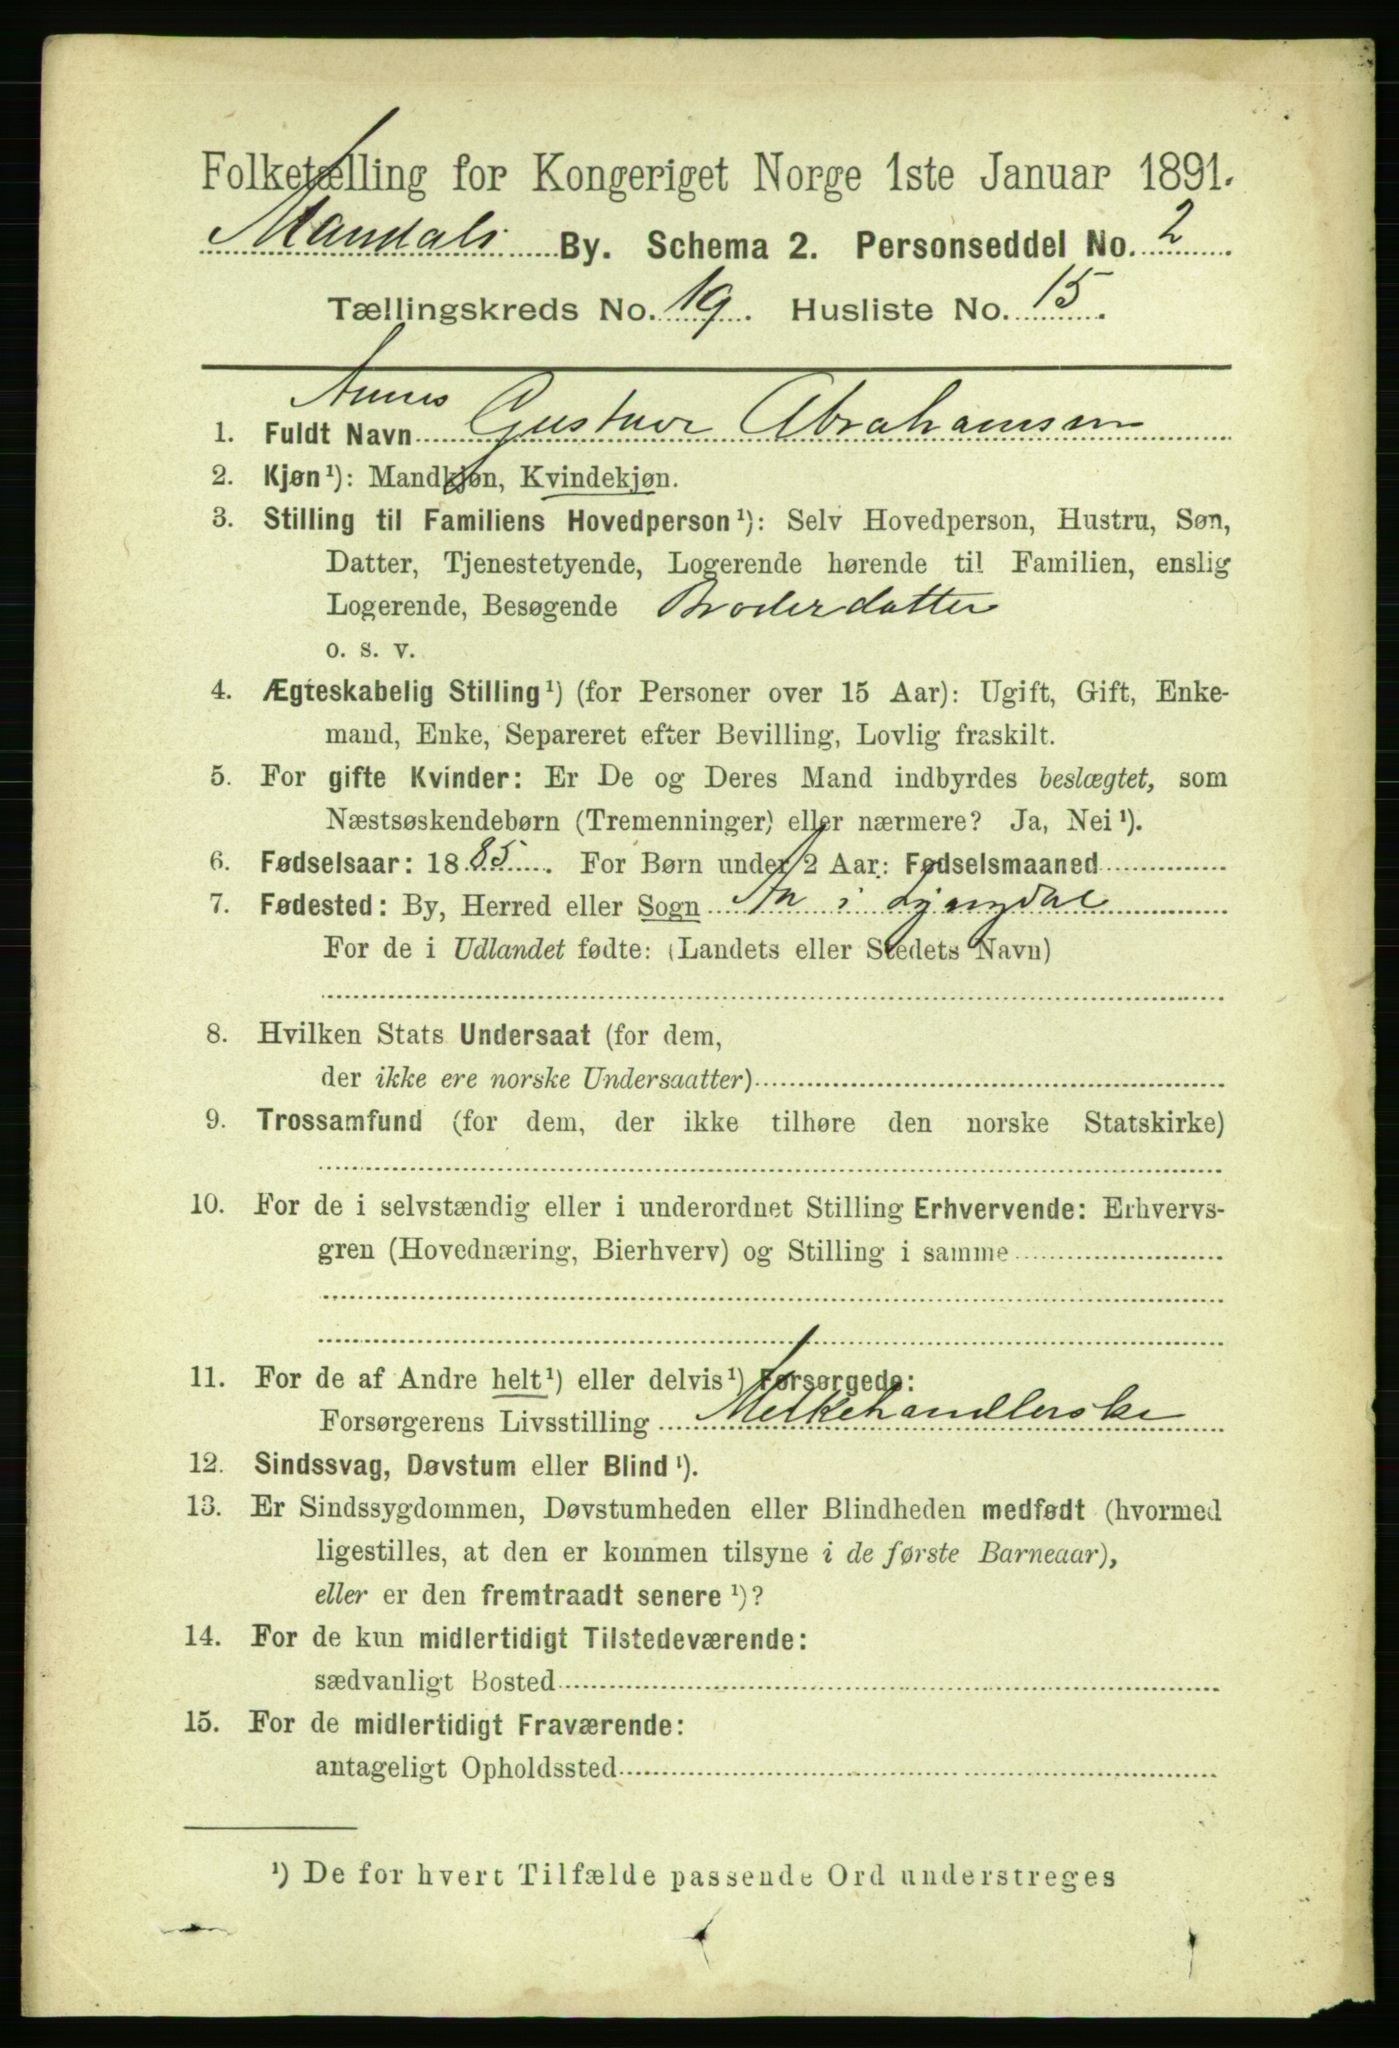 Folketælling for Kongeriget Norge 1ste Januar 1891.
Mandals By. Schema 2. Personseddel No. 2
Tællingskreds No. 19. Husliste No. 15.
1. Fuldt Navn Gustave Abrahamsen
2. Kjøn¹): Mandkjøn, Kvindekjøn.
3. Stilling til Familiens Hovedperson¹): Selv Hovedperson, Hustru, Søn,
Datter, Tjenestetyende, Logerende hørende til Familien, enslig
Logerende, Besøgende Broderdatter
o. s. v.
4. Ægteskabelig Stilling¹) (for Personer over 15 Aar): Ugift, Gift, Enke-
mand, Enke, Separeret efter Bevilling, Lovlig fraskilt.
5. For gifte Kvinder: Er De og Deres Mand indbyrdes beslægtet, som
Næstsøskendebørn (Tremenninger) eller nærmere? Ja, Nei¹).
6. Fødselsaar: 1885. For Børn under 2 Aar: Fødselsmaaned
7. Fødested: By, Herred eller Sogn Aa i Lyngdal
For de i Udlandet fødte: (Landets eller Stedets Navn)
8. Hvilken Stats Undersaat (for dem,
der ikke ere norske Undersaatter)
9. Trossamfund (for dem, der ikke tilhøre den norske Statskirke)
10. For de i selvstændig eller i underordnet Stilling Erhvervende: Erhvervs-
gren (Hovednæring, Bierhverv) og Stilling i samme
11. For de af Andre helt¹) eller delvis¹) Forsørgede:
Forsørgerens Livsstilling Melkehandlerske
12. Sindssvag, Døvstum eller Blind¹).
13. Er Sindssygdommen, Døvstumheden eller Blindheden medfødt (hvormed
ligestilles, at den er kommen tilsyne i de første Barneaar),
eller er den fremtraadt senere¹)?
14. For de kun midlertidigt Tilstedeværende:
sædvanligt Bosted
15. For de midlertidigt Fraværende:
antageligt Opholdssted
¹) De for hvert Tilfælde passende Ord understreges